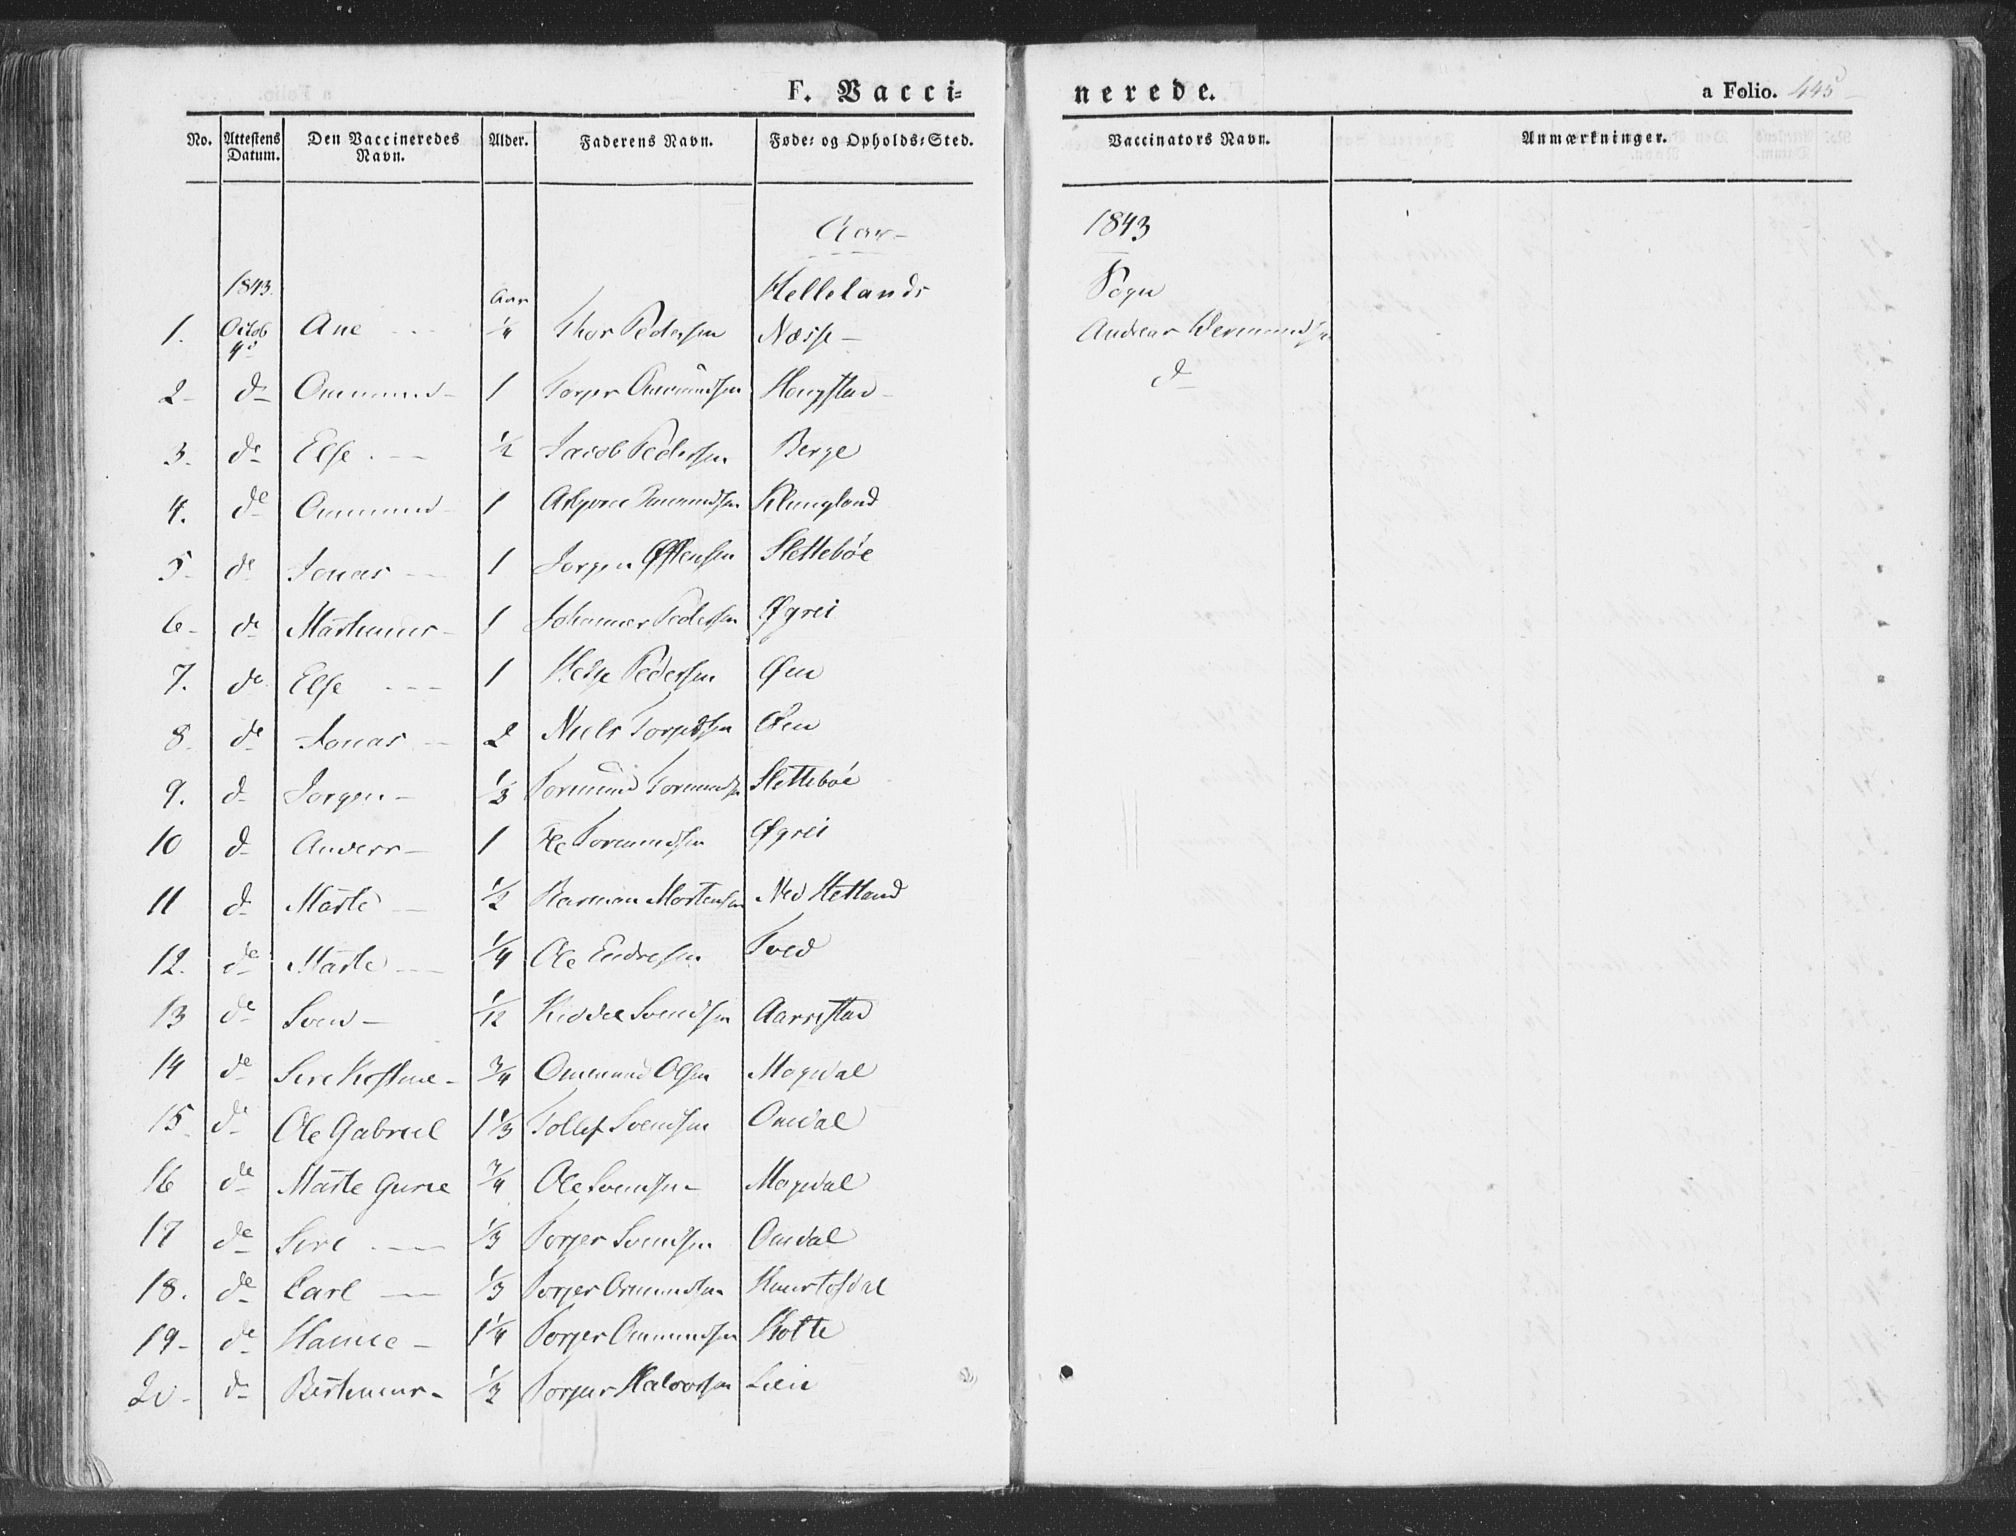 F. Vaccinerede.
a Folio. 445
No. Attestens Datum. Den Vaccineredes Navn. Alder. Faderens Navn. Føde- og Opholds-Sted. Vaccinators Navn. Anmærkninger.
Aar 1843
1843. Hellelands Sogn
Aar
1. Octob 4de Ane 1/4 Thor Pedersen Næsse Andreas
2 do Ommund 1 Torger Ommundsen Haugstad do
3. do Else 1/2 Jacob Pedersen Berge
4. do Ommund 1 Asbjørn Klungland
5 do Jonas 1 Jørgen Slettebøe
6 do Marthinus 1 Johannes Pedersen Øgrei
7. do Else 1 Helge Pedersen Øen
8 do Jonas 2 Niels Øen
9. do Jørgen 1/3 Tormund Tormundsen Slettebøe
10 do Anders 1 Ole Tormundsen Øgrei
11 do Marte 1/2 Rasmus Mortensen Ned Hetland
12. do Marte 1/4 Ole Endresen Tved
13 do Sven 1/12 Kiddel Svendsen Aarrestad
14 do Sire 3/4 Ommund Olsen Mogedal
15 do Ole Gabriel 1 1/3 Tollef Svendsen Omdal
16 do Marte Gurie 3/4 Ole Svendsen Mogedal
17 do Sire 1/3 Torger Svendsen Omdal
18. do Carl 1/3 Torger Ommundsen
19 do Hanne 1 1/4 Torger Ommundsen Skotte
20 do Berthinus 1/2 Torger Halvorsen Leie